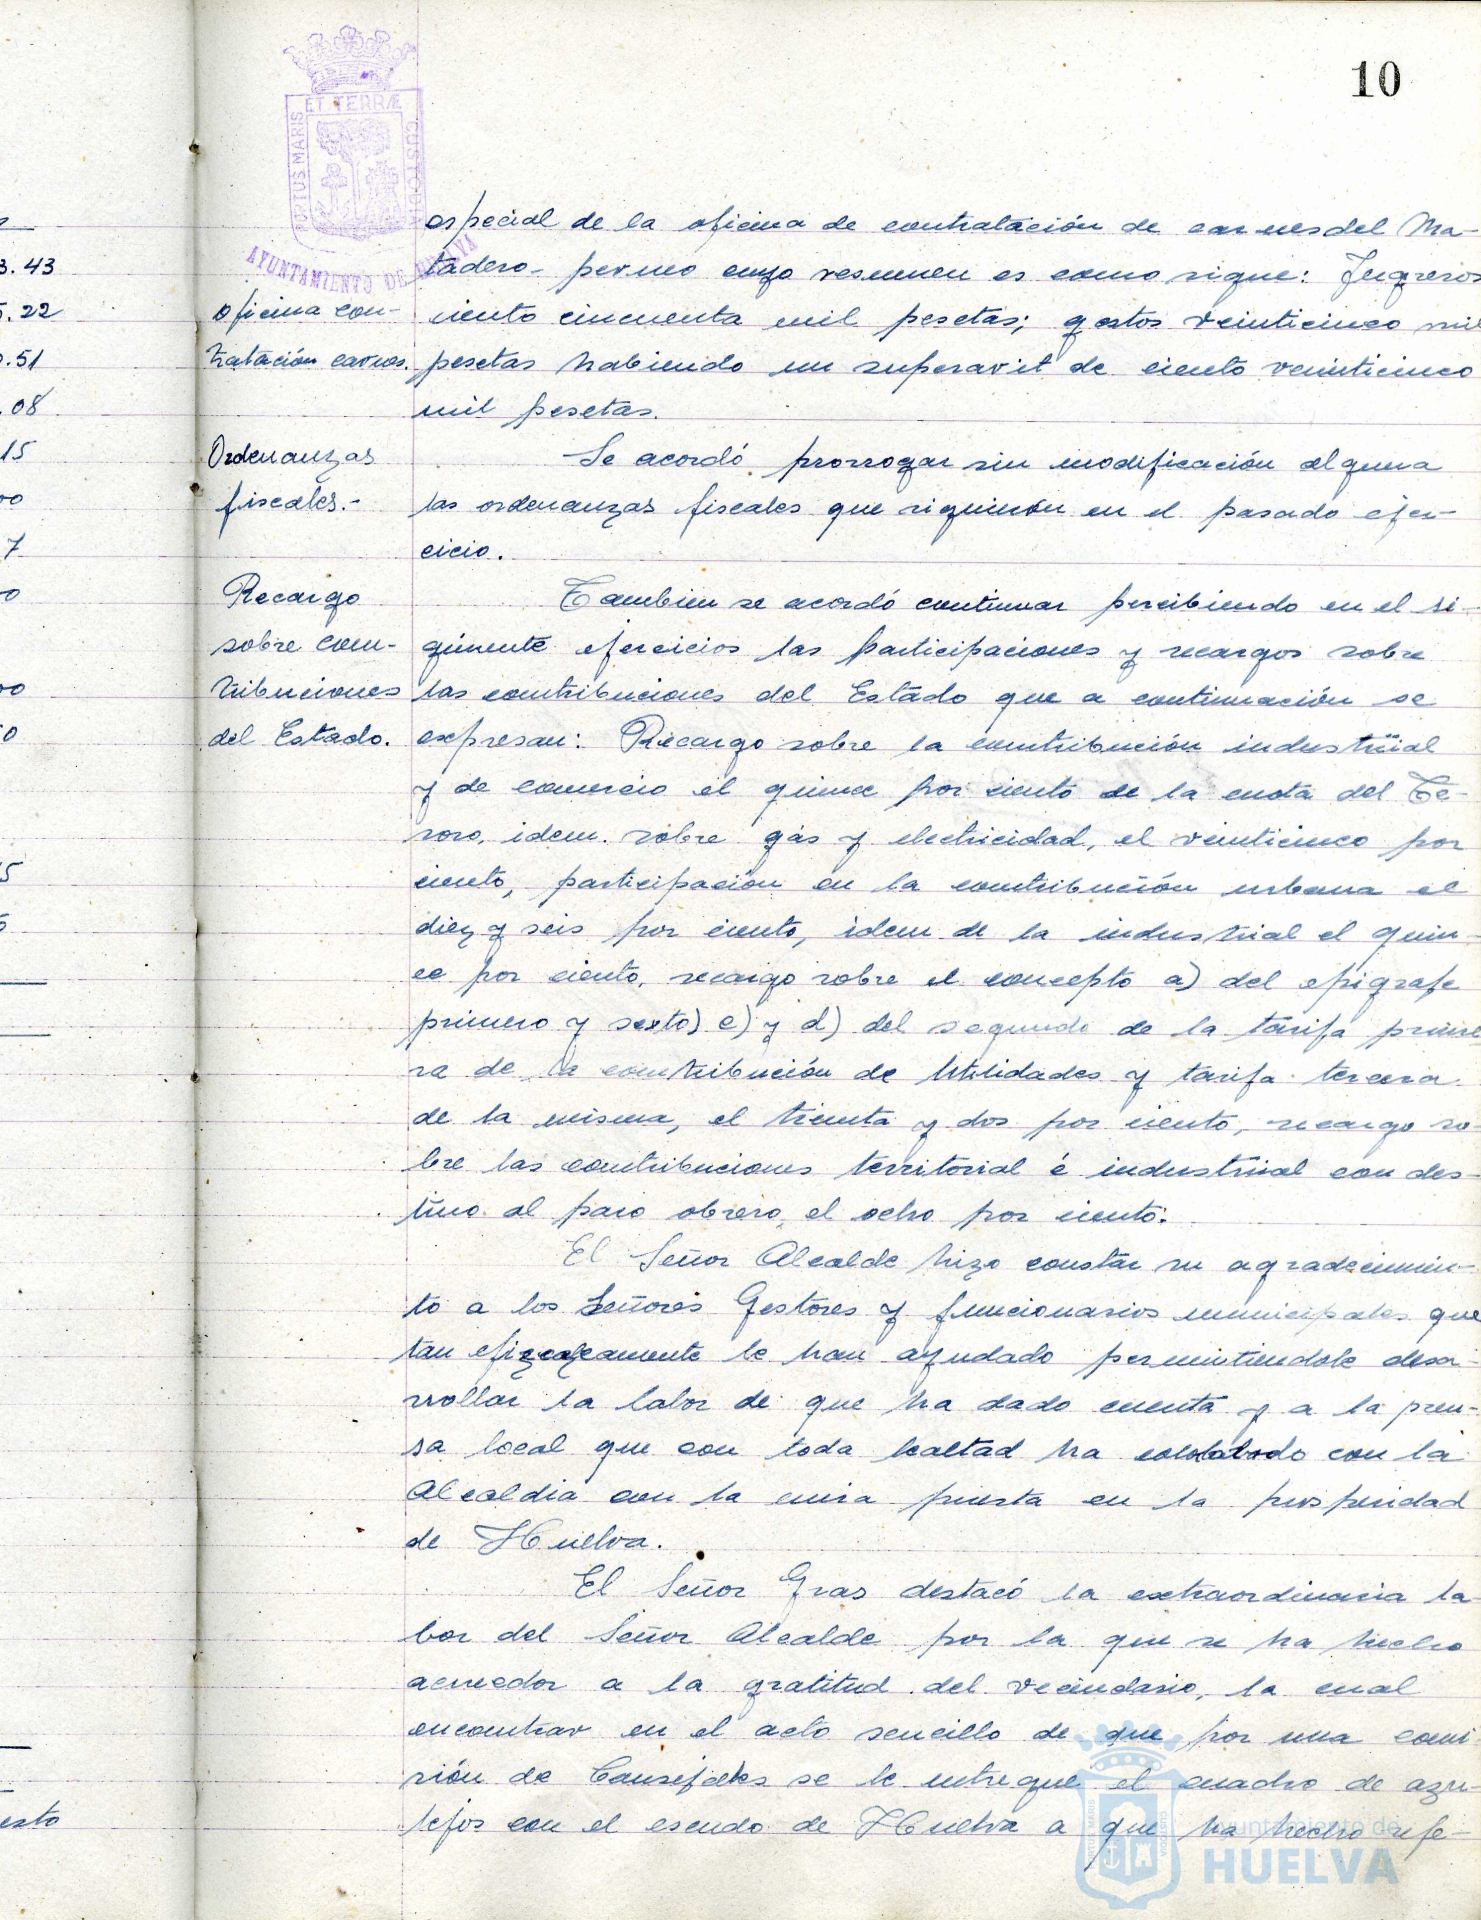 10
PORTUS MARIS ET TERRÆ CUSTODIA
AYUNTAMIENTO DE HUELVA
especial de la oficina de contratación de carnes del Ma-
tadero- permo cuyo resumen es como sigue: Ingresos
oficina con-
ciento cincuenta mil pesetas; gastos veinticinco mil
tratación carnes.
pesetas habiendo un superavit de ciento veinticinco
mil pesetas.
Ordenanzas
fiscales.-
Se acordó prorrogar sin modificación alguna
las ordenanzas fiscales que siguieron en el pasado ejer-
cicio.
Recargo
sobre con-
tribuciones
del Estado.
Tambien se acordó continuar percibiendo en el si-
guiente ejercicios las participaciones y recargos sobre
las contribuciones del Estado que a continuación se
expresan: Recargo sobre la contribución industrial
y de comercio el quince por ciento de la cuota del Te-
soro, idem. sobre gas y electricidad, el veinticinco por
ciento, participación en la contribución urbana el
diez y seis por ciento, idem de la industrial el quin-
ce por ciento, recargo sobre el concepto a) del epigrafe
primero y sexto) c) y d) del segundo de la tarifa prime
ra de la contribución de Utilidades y tarifa tercera
de la misma, el treinta y dos por ciento, recargo so-
bre las contribuciones territorial é industrial con des-
tino al paro obrero, el ocho por ciento.
El Señor Alcalde hizo constar su agradecimien-
to a los Señores Gestores y funcionarios municipales que
tan le han ayudado permitiendole desa-
rrollar la labor de que ha dado cuenta y a la pren-
sa local que con toda lealtad ha con la
Alcaldia con la mira puesta en la prosperidad
de Huelva.
El Señor Gras destacó la extraordinaria la-
bor del Señor Alcalde por la que se ha hecho
acreedor a la gratitud del vecindario, la cual
encontrar en el acto sencillo de que por una comi-
sión de se le entregue el cuadro de azu-
lejos con el escudo de Huelva a que ha hecho refe-
3.43
.22
.51
.08
15
00
7
0
00
0
5
esto
Ayuntamiento de
HUELVA